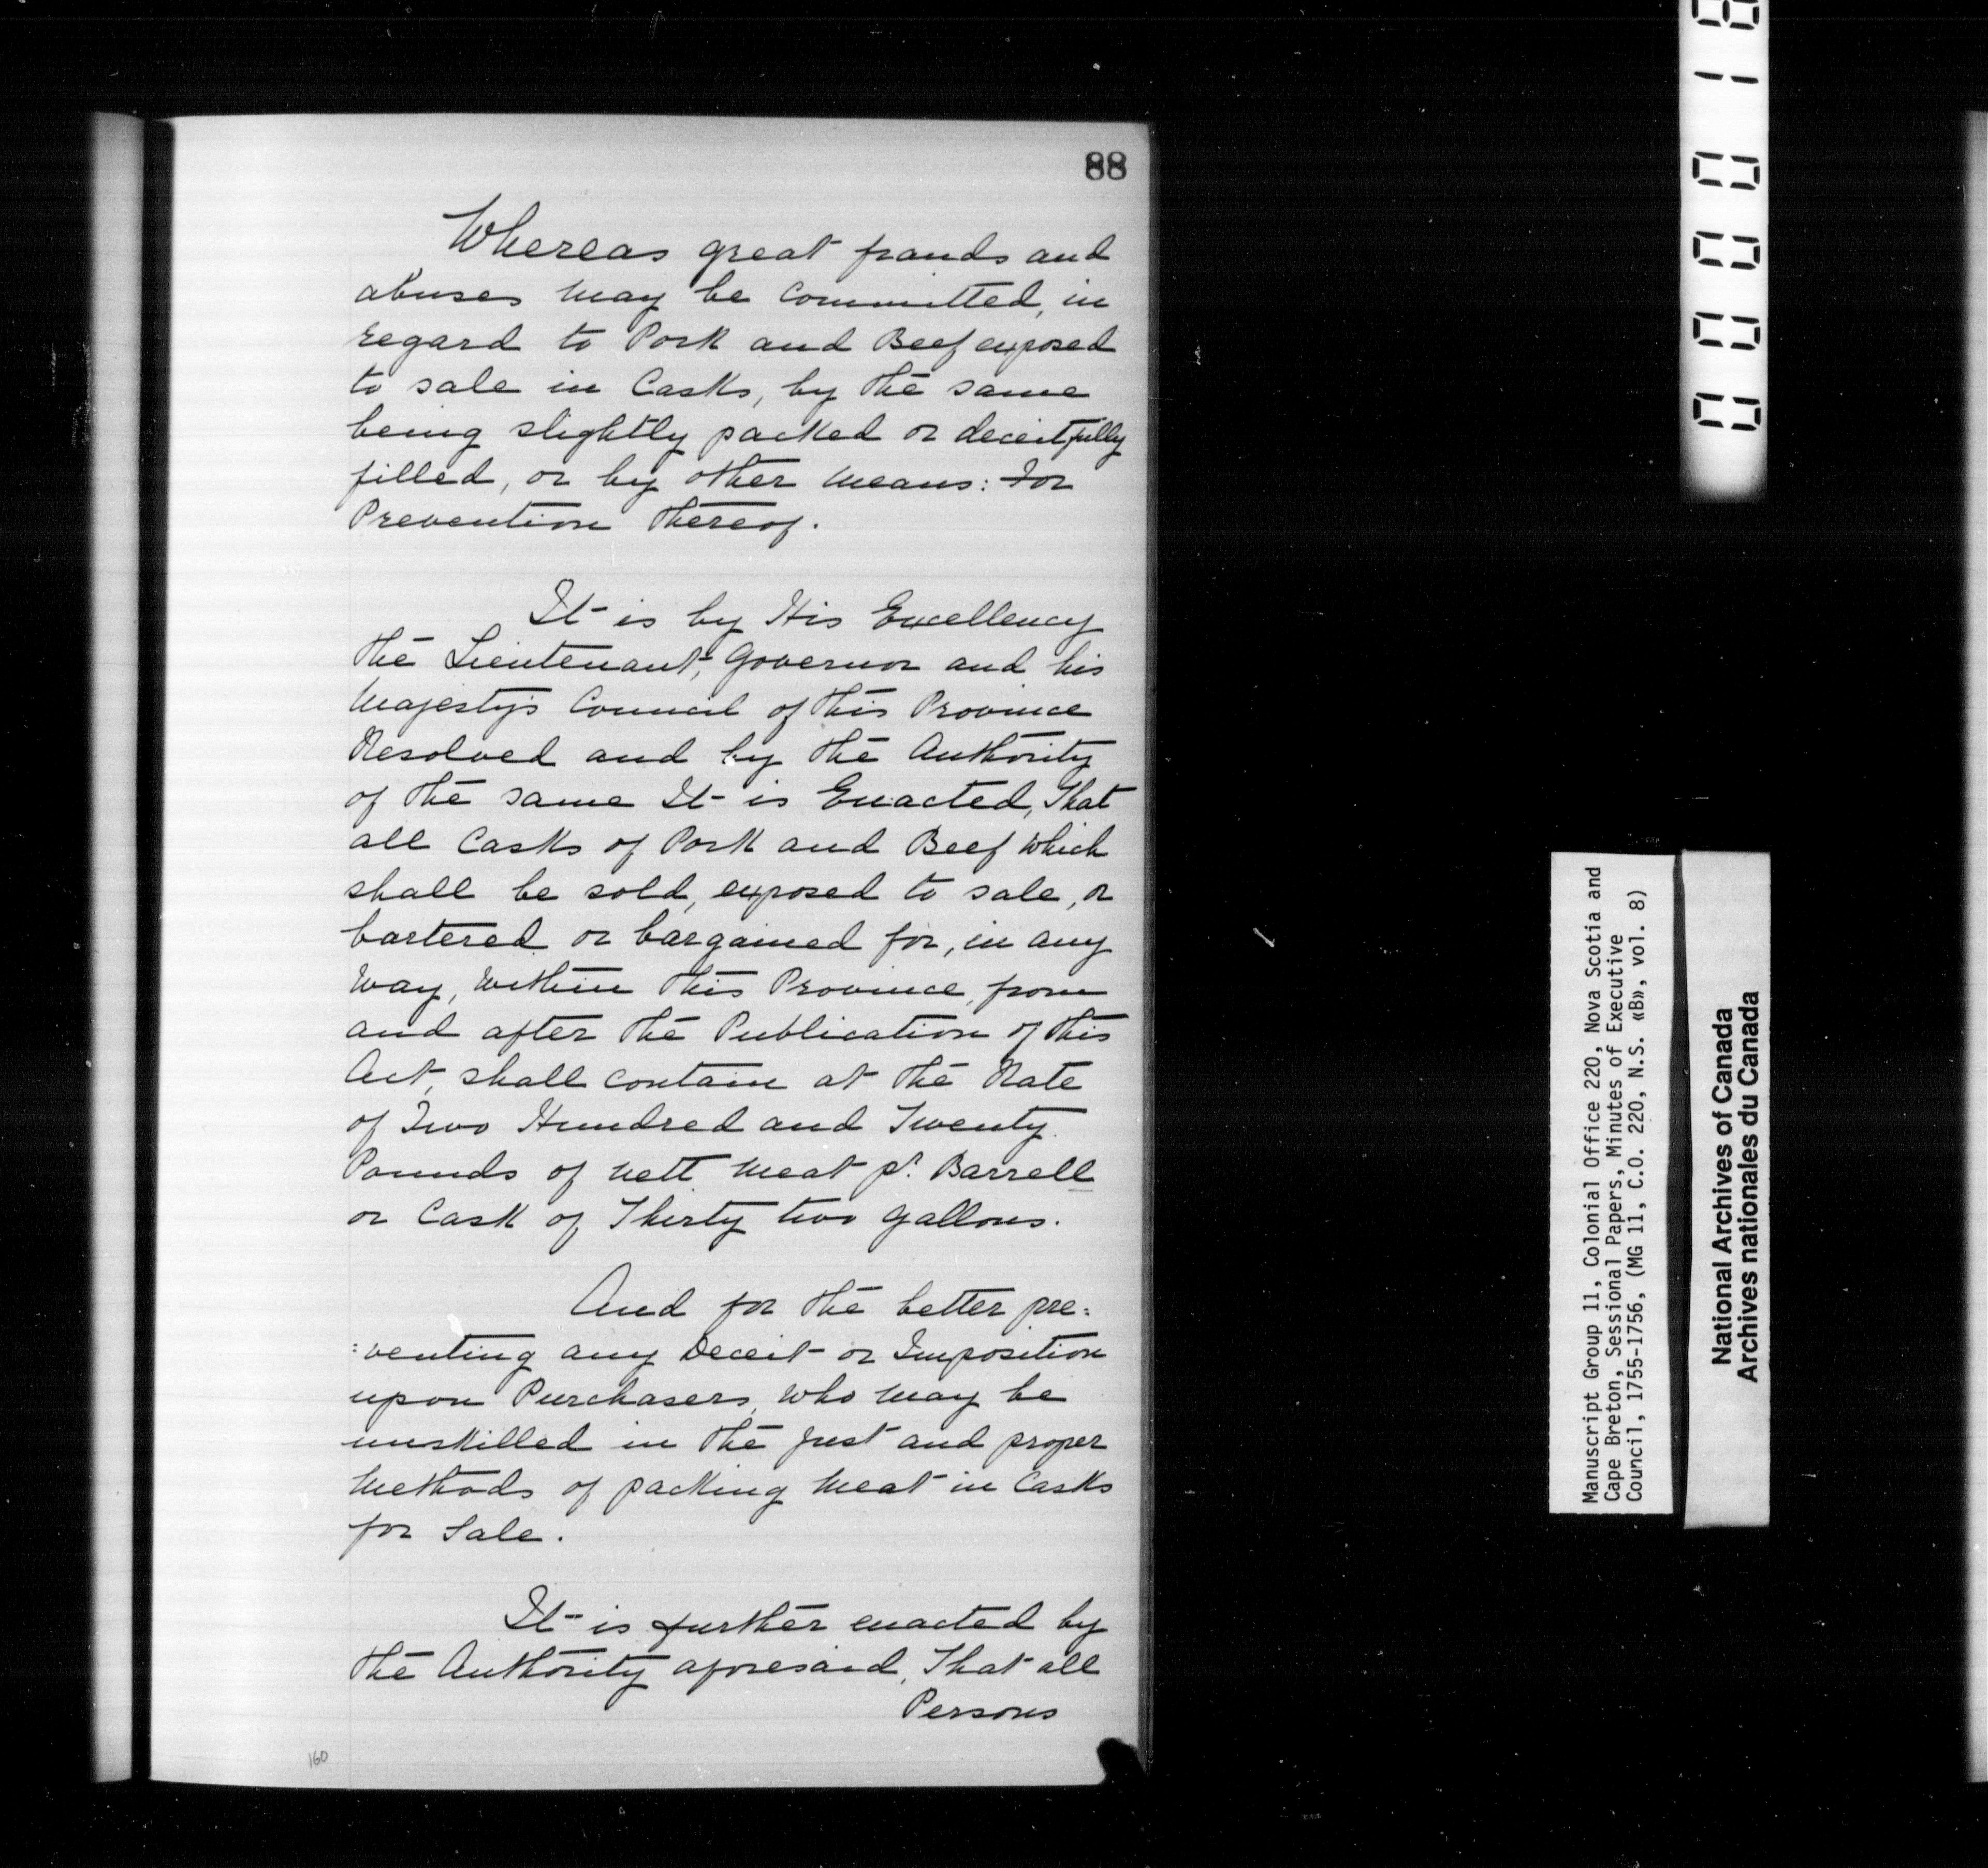 88
Whereas great frauds and
abuses may be Committed, in
regard to Pork and Beef exposed
to sale in Casks, by the same
being slightly packed or deceitfully
filled, or by other means: For
Prevention thereof.
It is by His Excellency
the Lieutenant, Governor and his
Majesty's Council of this Province
Resolved and by the Authority
of the same It is Enacted, That
all Casks of Pork and Beef which
shall be sold, exposed to sale, or
bartered or bargained for, in any
Way, Within this Province, from
and after the Publication of this
Act, shall contain at the Rate
of Two Hundred and Twenty
Pounds of nett meat pr. Barrell
or Cask of Thirty two gallons.
And for the better pre:
:venting any Deceit or Imposition
upon Purchasers, who may be
unskilled in the just and proper
Methods of packing Meat in Casks
for Sale.
It is further enacted by
the Authority aforesaid, That all
Persons
160
Manuscript Group 11, Colonial Office 220, Nova Scotia and
Cape Breton, Sessional Papers, Minutes of Executive
Council, 1755-1756, (MG 11, C.O. 220, N.S. «B», vol. 8)
National Archives of Canada
Archives nationales du Canada